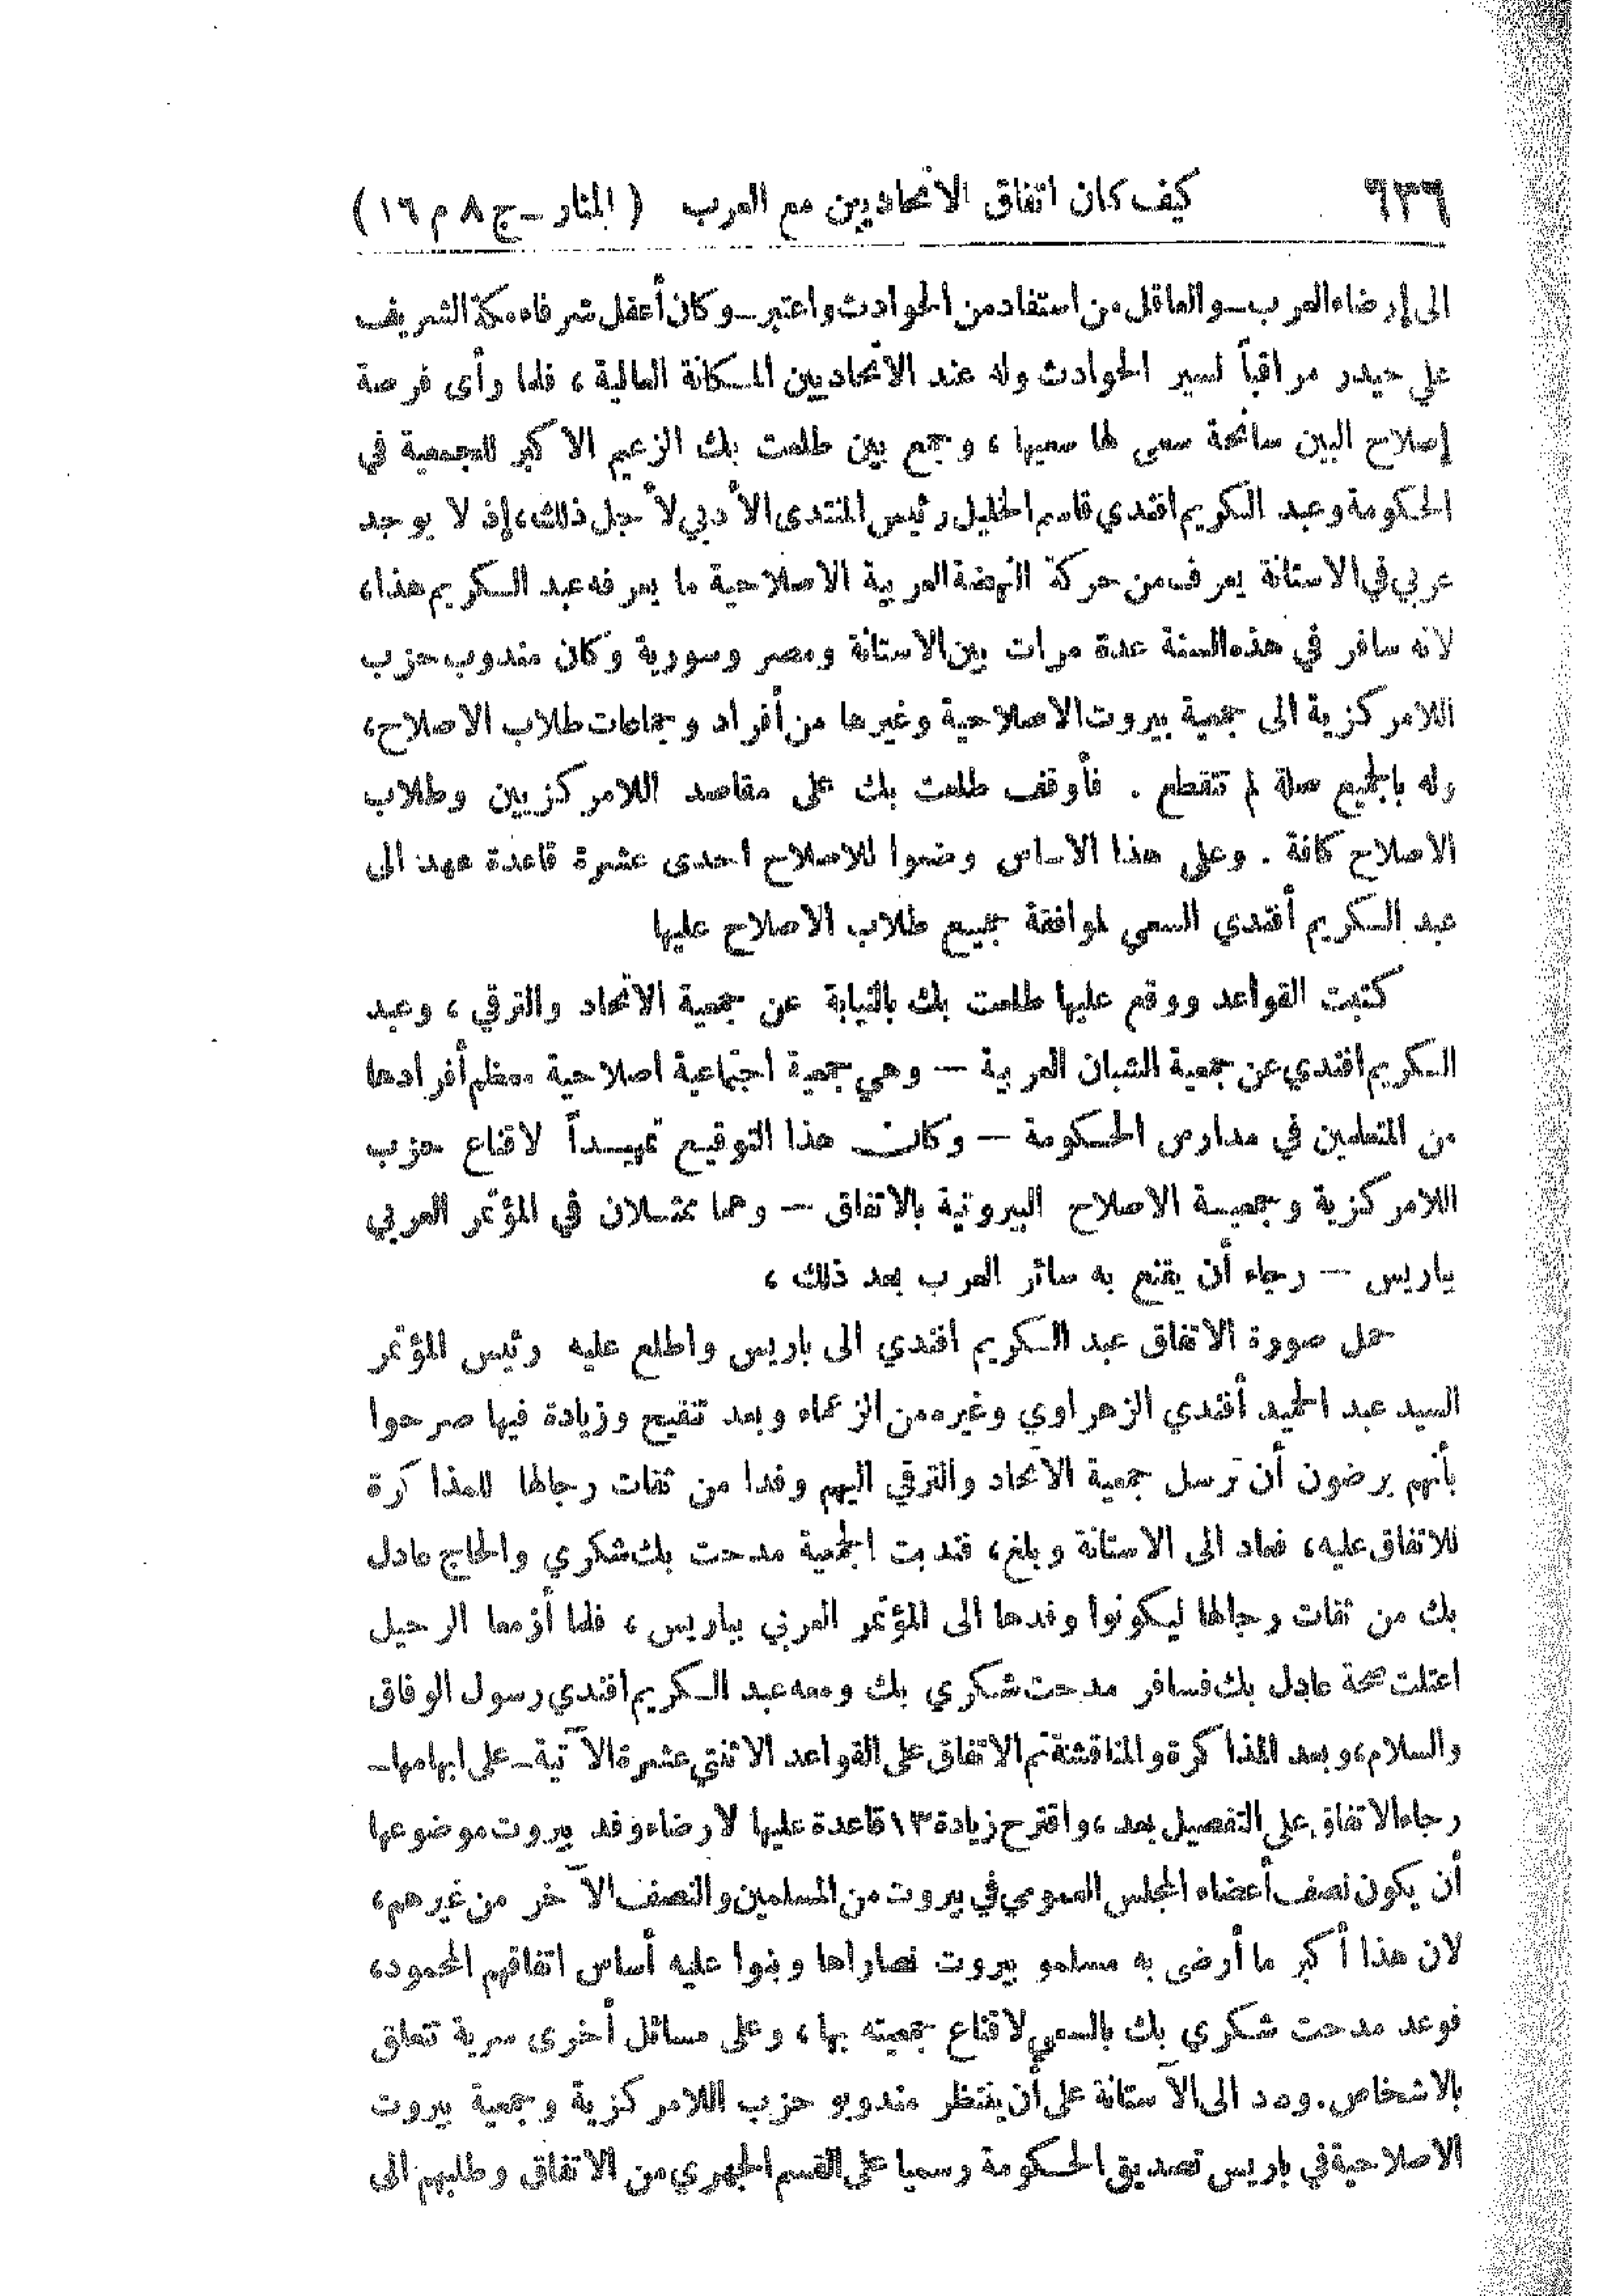 ٦٣٦ كيف كان اتفاق الاتحاديين مع العرب (المنار ــ ج ٨ م ١٦)
الى إرضاء العرب ــ والعاقل من استفاد من الحوادث واعتبر ــ وكان أعقل شرفاء مكة الشريف
علي حيدر مراقباً لسير الحوادث وله عند الاتحاديين المكانة العالية ، فلما رأى فرصة
إصلاح البين سانحة سعى لها سعيها ، وجمع بين طلعت بك الزعيم الاكبر للجمعية في
الحكومة وعبد الكريم افندي قاسم الخليل رئيس المنتدى الأدبي لأجل ذلك ، إذ لا يوجد
عربي في الاستانة يعرف من حركة النهضة العربية الاصلاحية ما يعرفه عبد الكريم هذا ،
لانه سافر في هذه السنة عدة مرات بين الاستانة ومصر وسورية وكان مندوب حزب
اللامركزية الى جمعية بيروت الاصلاحية وغيرها من أفراد وجماعات طلاب الاصلاح ،
وله بالجميع صلة لم تنقطع . فأوقف طلعت بك على مقاصد اللامركزيين وطلاب
الاصلاح كافة . وعلى هذا الاساس وضعوا للاصلاح احدى عشرة قاعدة عهد الى
عبد الكريم أفندي السعي لموافقة جميع طلاب الاصلاح عليها
كتبت القواعد ووقع عليها طلعت بك بالنيابة عن جمعية الاتحاد والترقي ، وعبد
الكريم افندي عن جمعية الشبان العربية — وهي جمعية اجتماعية اصلاحية معظم أفرادها
من المتعلمين في مدارس الحكومة — وكان هذا التوقيع تمهيداً لاقناع حزب
اللامركزية وجمعية الاصلاح البيروتية بالاتفاق — وهما ممثلان في المؤتمر العربي
بباريس — رجاء أن يقنع به سائر العرب بعد ذلك ،
حمل صورة الاتفاق عبد الكريم افندي الى باريس واطلع عليه رئيس المؤتمر
السيد عبد الحميد أفندي الزهراوي وغيره من الزعماء وبعد تنقيح وزيادة فيها صرحوا
بأنهم يرضون أن ترسل جمعية الاتحاد والترقي اليهم وفدا من ثقات رجالها للمذاكرة
للاتفاق عليه ، فعاد الى الاستانة وبلغ ، فندبت الجمعية مدحت بك شكري والحاج عادل
بك من ثقات رجالها ليكونوا وفدها الى المؤتمر العربي بباريس ، فلما أزمعا الرحيل
اعتلت صحة عادل بك فسافر مدحت شكري بك ومعه عبد الكريم افندي رسول الوفاق
والسلام ، وبعد المذاكرة والمناقشة تم الاتفاق على القواعد الاثنتي عشرة الآتية ــ على ابهامها ــ
رجاء الاتفاق على التفصيل بعد ، واقترح زيادة ١٣ قاعدة عليها لارضاء وفد بيروت موضوعها
أن يكون نصف أعضاء المجلس العمومي في بيروت من المسلمين والنصف الآخر من غيرهم ،
لان هذا أكبر ما أرضى به مسلمو بيروت نصاراها وبنوا عليه أساس اتفاقهم المحمود ،
فوعد مدحت شكري بك بالسعي لاقناع جمعيته بها ، وعلى مسائل أخرى سرية تتعلق
بالاشخاص . وعاد الى الآستانة على أن ينتظر مندوبو حزب اللامركزية وجمعية بيروت
الاصلاحية في باريس تصديق الحكومة رسميا على القسم الجهري من الاتفاق وطلبهم الى